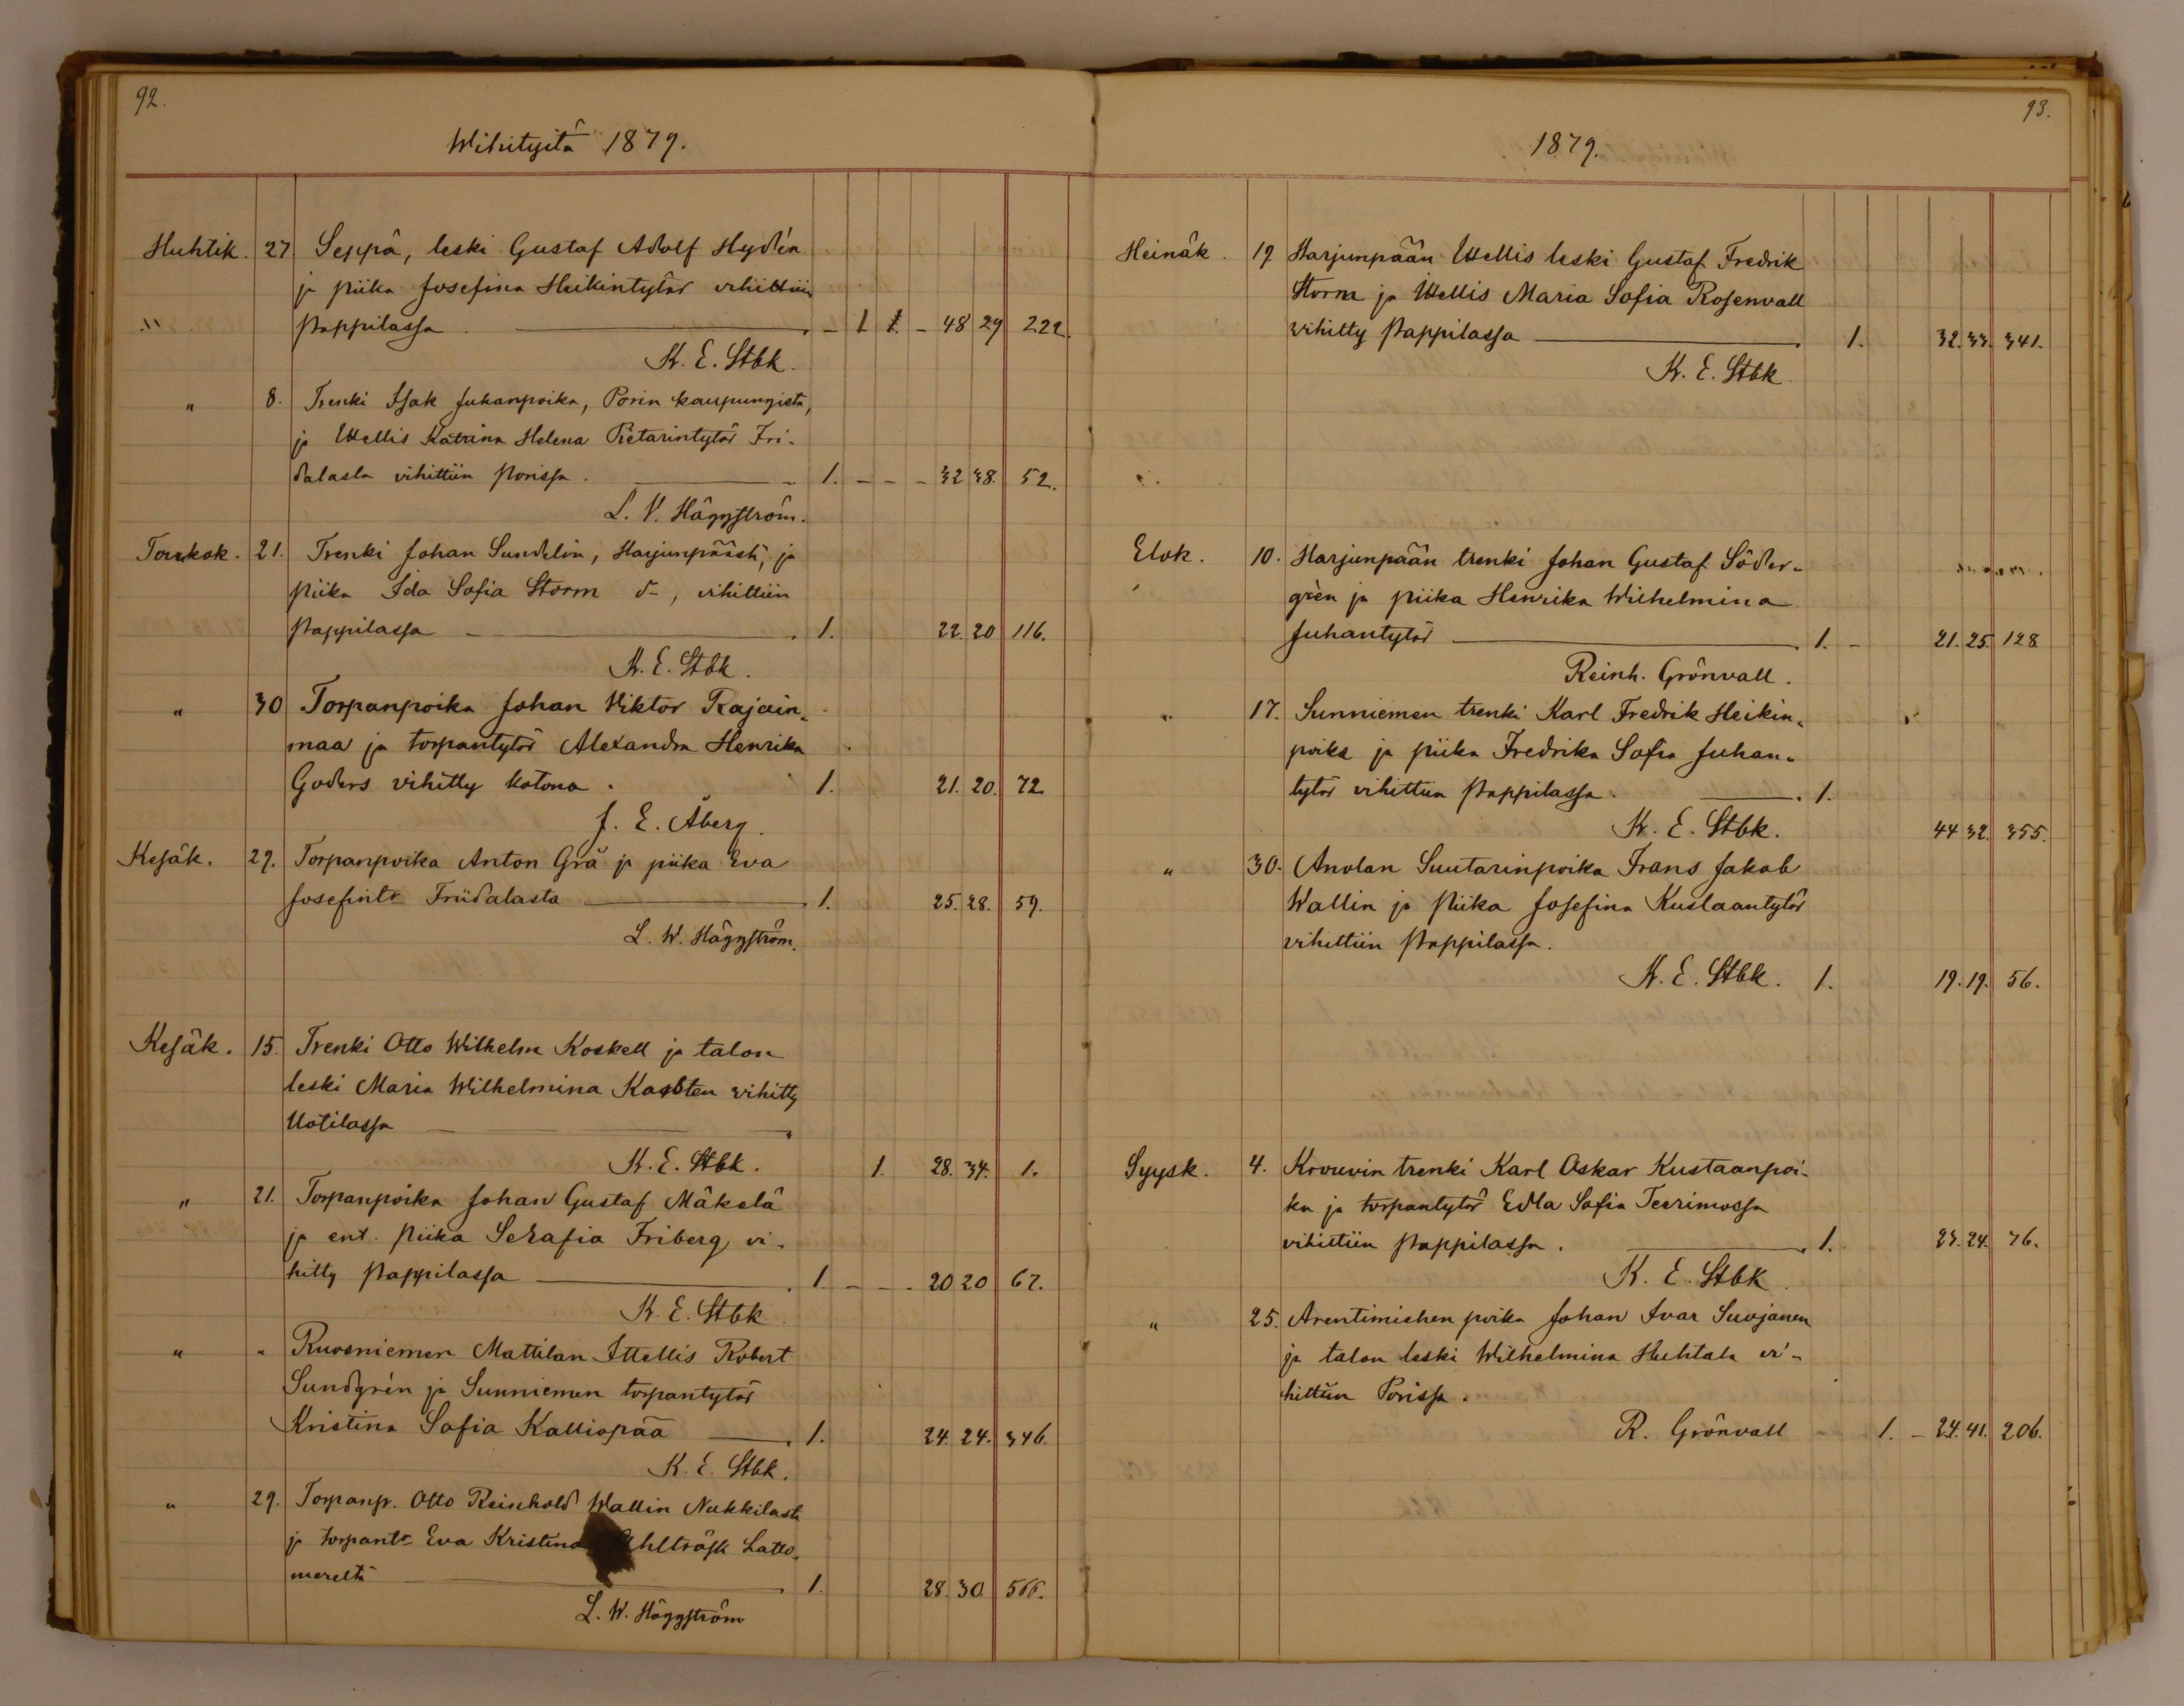 92.
Wihityitä 1879.
Huhtik. 27 Seppä, leski Gustaf Adolf Hydén
ja piika Josefina Heikintytär vihittiin
pappilassa - 1 1. - 48 29 222.
K. E. Stbk.
" 8. Trenki Isak Juhanpoika, Porin kaupungista,
ja Ittellis Katrina Helena Pietarintytär Fri-
dalasta vihittiin Porissa. 1. - - - 32 38. 52.
L. V. Häggström.
Toukok. 21. Trenki Johan Sundelin, Harjunpäästä, ja
piika Ida Sofia Storm d-, vihittiin
pappilassa 1. 22. 20 116.
K. E. Stbk.
" 30 Torpanpoika Johan Viktor Rajain-
maa ja torpantytär Alexandra Henrika
Goders vihitty kotona. 1. 21. 20. 72.
J. E. Åberg.
Kesäk. 29. Torpanpoika Anton Grå ja piika Eva
Josefintr Friidalasta 1. 25. 28. 59.
L. W. Häggström.
Kesäk. 15. Trenki Otto Wilhelm Koskell ja talon
leski Maria Wilhelmina Kasten vihitty
Uotilassa
K. E. Stbk. 1. 28. 34. 1.
" 21. Torpanpoika Johan Gustaf Mäkelä
ja ent. piika Serafia Friberg vi-
hitty pappilassa 1. - - - 20 20 67.
K. E. Stbk
" " Ruosniemen Mattilan Ittellis Robert
Sundgrén ja Sunniemen torpantytär
Kristina Sofia Kalliopää 1. 24. 24. 346.
K. E. Stbk.
" 29. Torpanp. Otto Reinhold Wallin Nukkilasta
ja torpantr Eva Kristina Latto-
mereltä 1. 28. 30. 566.
L. W. Häggström
93.
1879.
Heinäk. 19 Harjunpään Ittellis leski Gustaf Fredrik
Storm ja Ittellis Maria Sofia Rosenvall
vihitty pappilassa 1. 32. 33. 341.
K. E. Stbk.
Elok. 10. Harjunpään trenki Johan Gustaf Söder-
grèn ja piika Henrika Wilhelmina
Juhantytär 1. - 21. 25. 128
Reinh. Grönvall.
" 17. Sunniemen trenki Karl Fredrik Heikin-
poika ja piika Fredrika Sofia Juhan-
tytär vihittiin pappilassa. 1.
K. E. Stbk. 44 32. 355.
" 30. Anolan Suutarinpoika Frans Jakob
Wallin ja piika Josefina Kustaantytär
vihittiin pappilassa.
K. E. Stbk. 1. 19. 19. 56.
Syysk. 4. Krouvin trenki Karl Oskar Kustaanpoi-
ka ja torpantytär Edla Sofia Teerimossa
vihittiin pappilassa. 1. 23. 24. 76.
K. E. Stbk.
" 25. Arentimiehen poika Johan Ivar Suojanen
ja talon leski Wilhelmina Huhtala vi-
hittiin Porissa.
R. Grönvall 1. - 24. 41. 206.